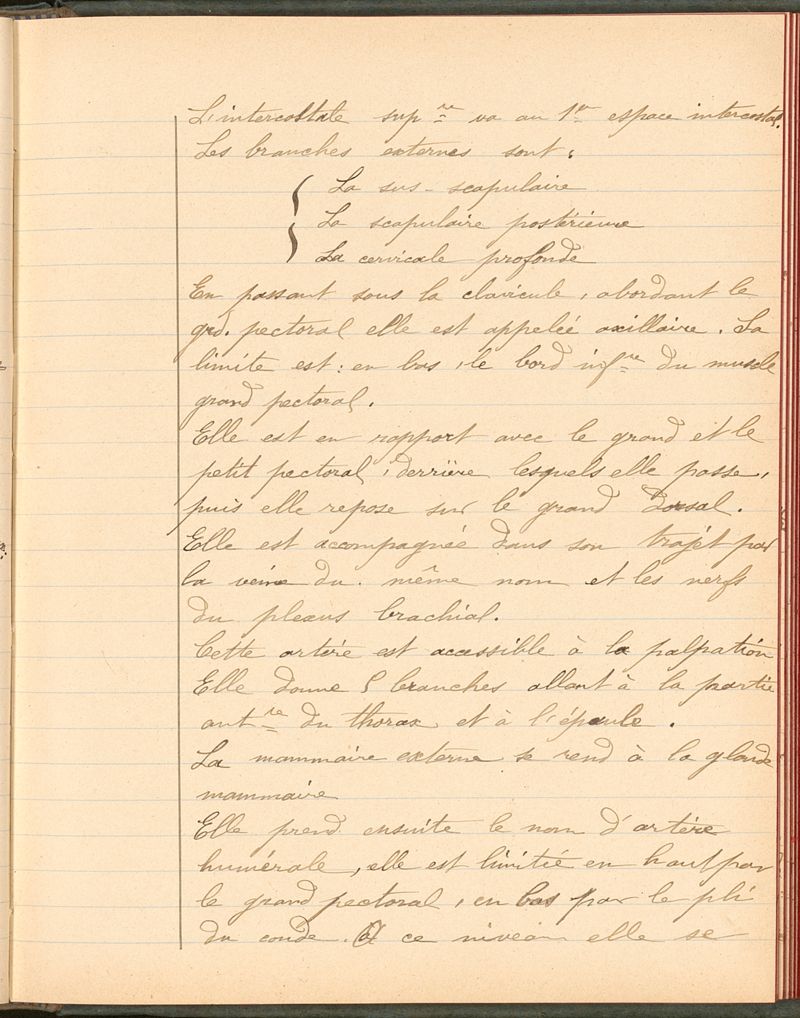 L'intercostale sup re va au 1er espace intercostal.
Les branches externes sont :
La sus-scapulaire
La scapulaire postérieure
La cervicale profonde
En passant sous la clavicule, abordant le
grd. pectoral elle est appelée axillaire. Sa
limite est : en bas, le bord inf re du muscle
grand pectoral.
Elle est en rapport avec le grand et le
petit pectoral, derrière lesquels elle passe,
puis elle repose sur le grand dorsal.
Elle est accompagnée dans son trajet par
la veine du même nom et les nerfs
du plexus brachial.
Cette artère est accessible à la palpation
Elle donne 5 branches allant à la partie
ant re du thorax et à l'épaule.
La mammaire externe se rend à la glande
mammaire
Elle prend ensuite le nom d'artère
humérale, elle est limitée en haut par
le grand pectoral, en bas par le pli
du coude. A ce niveau elle se